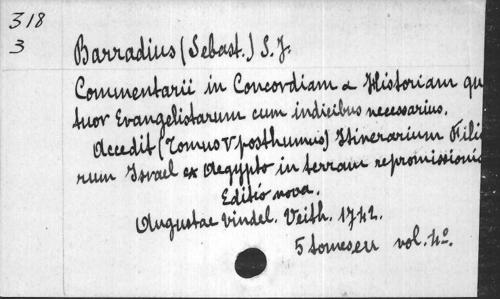 318
3
Barradius (Sebast.) S. J.
Commentarii in Concordiam & Historiam qu
tuor Evangelistarum cum indicibus necessarius.
Accedit (Tomus V posthumus) Itinerarium Fili
rum Israel ex Aegypto in terram repromissionis
Editio nova.
Augustae Vindel. Veith. 1742.
5 tomes en vol. 4o.